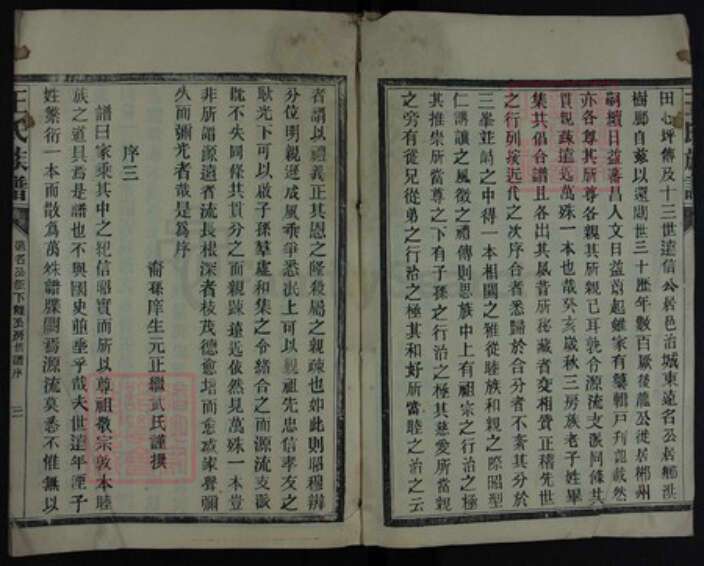 田心坪傳及十三世遠信公居邑治城東遠名公居鄉洪
樹鄉自茲以還閱世三十歷年數百厥後龍公徙居郴州
嗣續日益蕃昌人文日益蔚起雖家有藥輯戶刋龍截然
亦各尊其所尊各親其所親已耳孰合源流支派同條共
貫親疎遠邇萬殊一本也哉癸亥歲秋三房族老子姓畢
集共倡合譜且各出其夙昔所秘藏者交相質正稽先世
之行列按近代之次序合者悉歸於合分者不紊其分於
三峯並峙之中得一本相關之雅從睦族和親之際開型
仁講讓之風徵之禮傳則思族中上有祖宗之行治之極
其推崇所當尊之下有子孫之行治之極其慈愛所當親
之旁有從兄從弟之行治之極其和好所當睦之治之云
者謂以禮義正其恩之隆殺屬之親疎也如此則昭穆辨
分位明親遜成風乖爭悉泯上可以覲祖先忠信孝友之
耿光下可以啟子孫羣處和集之令緒合之而源流支派
旣不失同條共貫分之而親疎遠邇依然見萬殊一本豈
非所謂源遠者流長根深者枝茂德愈培而愈厚家譽彌
久而彌光者哉是爲序
裔孫庠生元正繼武氏謹撰
序三
譜曰家乘其中之紀信昭實而所以尊祖敬宗敦本睦
族之道具焉是譜也不與國史並垂乎哉夫世遠年湮子
姓繁衍一本而散爲萬殊譜牒闕焉源流莫悉不惟無以
王氏族譜